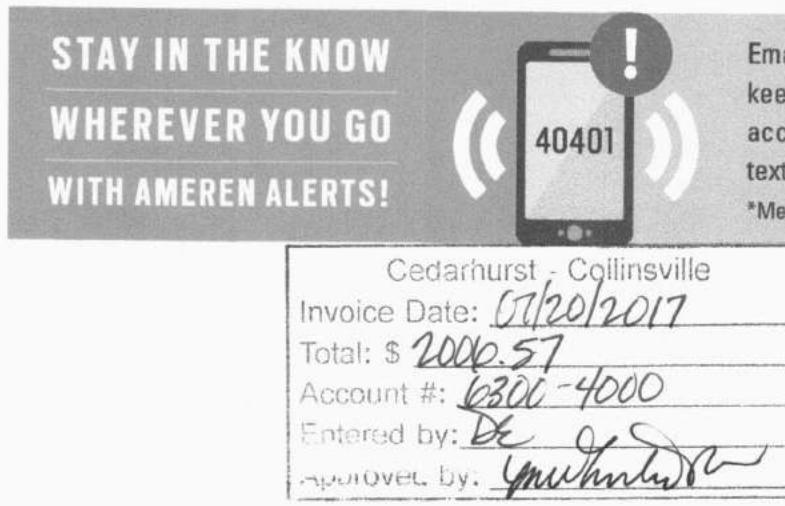 STAY IN THE KNOW
WHEREVER YOU GO
WITH AMEREN ALERTS!
40401
!
Ema
kee
acc
text
*Me
Cedarhurst - Collinsville
Invoice Date: 07/20/2017
Total: $ 2006.57
Account #: 6300-4000
Entered by: DE
Approved by: